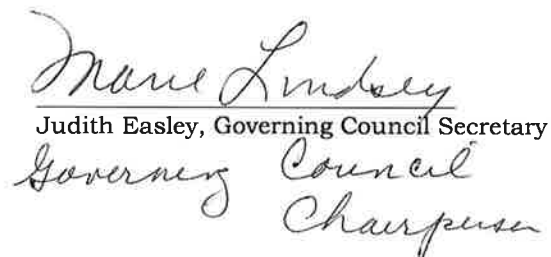 Marie Lindsey
Judith Easley, Governing Council Secretary
Governing Council
Chairperson